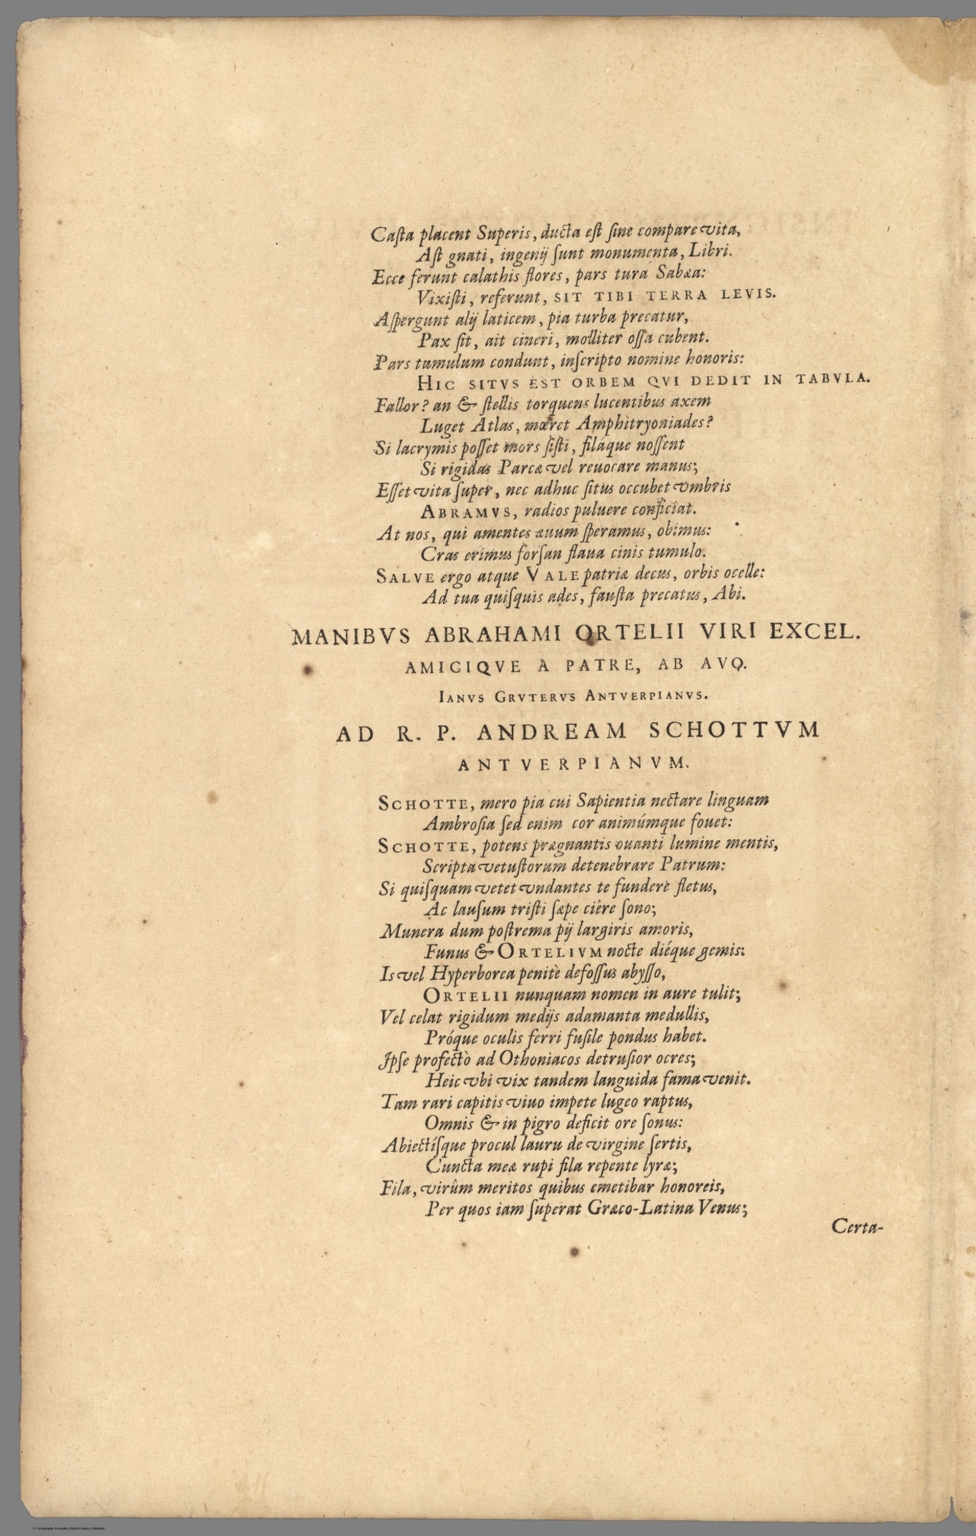 Caſta placent Superis, ducta eſt ſine compare vita,
Aſt gnati, ingenij ſunt monumenta, Libri.
Ecce ferunt calathis flores, pars tura Sabæa:
Vixiſti, referunt, SIT TIBI TERRA LEVIS.
Aſpergunt alij laticem, pia turba precatur,
Pax ſit, ait cineri, molliter oſſa cubent.
Pars tumulum condunt, inſcripto nomine honoris:
HIC SITVS EST ORBEM QVI DEDIT IN TABVLA.
Fallor? an & ſtellis torquens lucentibus axem
Luget Atlas, mæret Amphitryoniades?
Si lacrymis poſſet mors ſiſti, filáque noſſent
Si rigidas Parcæ vel reuocare manus;
Eſſet vita ſuper, nec adhuc ſitus occubet vmbris
ABRAMVS, radios puluere conficiat.
At nos, qui amentes æuum ſperamus, obimus:
Cras erimus forſan flaua cinis tumulo.
SALVE ergo atque VALE patriæ decus, orbis ocelle:
Ad tua quiſquis ades, fauſta precatus, Abi.
MANIBVS ABRAHAMI ORTELII VIRI EXCEL.
AMICIQVE À PATRE, AB AVO.
IANVS GRVTERVS ANTVERPIANVS.
AD R. P. ANDREAM SCHOTTVM
ANTVERPIANVM.
SCHOTTE, mero pia cui Sapientia nectare linguam
Ambroſia ſed enim cor animúmque fouet:
SCHOTTE, potens prægnantis ouanti lumine mentis,
Scripta vetuſtorum detenebrare Patrum:
Si quiſquam vetet vndantes te funderè fletus,
Ac lauſum triſti ſæpe ciêre ſono;
Munera dum poſtrema pij largiris amoris,
Funus & ORTELIVM nocte diéque gemis:
Is vel Hyperborea penitè defoſſus abyſſo,
ORTELII nunquam nomen in aure tulit;
Vel celat rigidum medijs adamanta medullis,
Próque oculis ferri fuſile pondus habet.
Ipſe profectò ad Othoniacos detruſior ocres;
Heic vbi vix tandem languida fama venit.
Tam rari capitis viuo impete lugeo raptus,
Omnis & in pigro deficit ore ſonus:
Abiectíſque procul lauru de virgine ſertis,
Cuncta meæ rupi fila repente lyræ;
Fila, virûm meritos quibus emetibar honoreis,
Per quos iam ſuperat Græco-Latina Venus;
Certa-